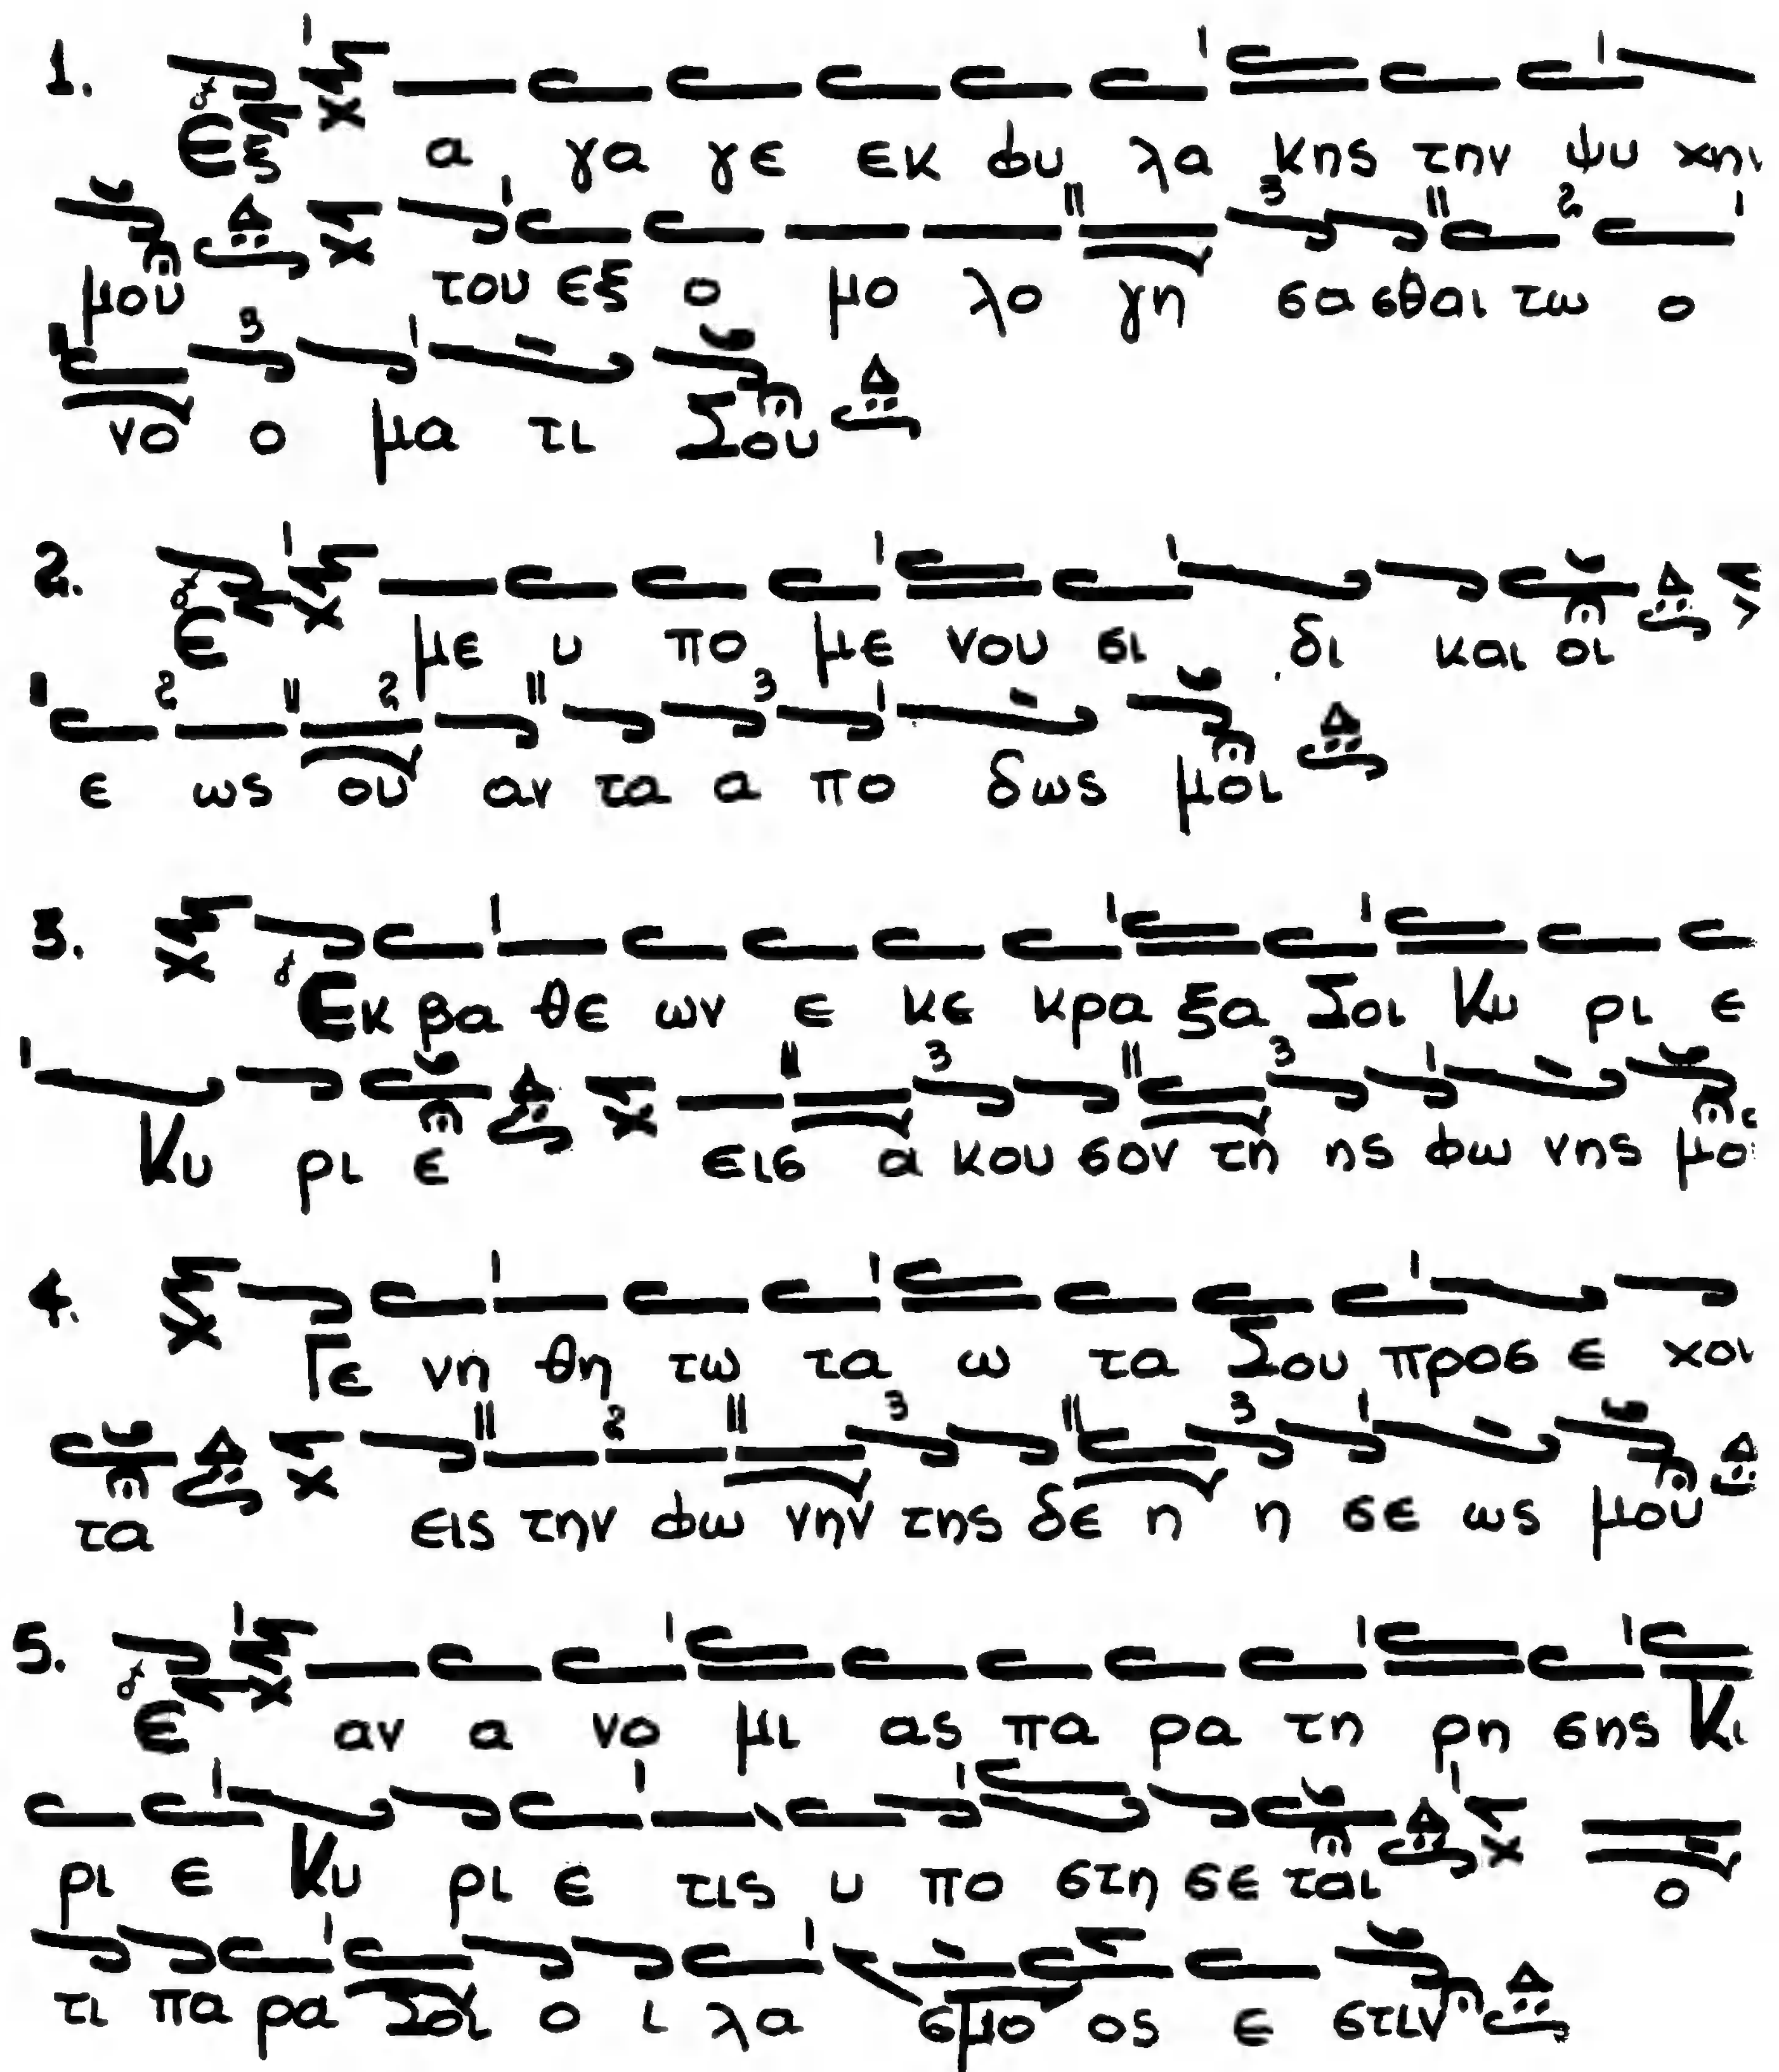 1. Εξ α γα γε εκ φυ λα κης την ψυ χην
μου του εξ ο μο λο γη σα σθαι τω ο
νο ο μα τι Σου
2. Ε με υ πο με νου σι δι και οι
ε ως ου αν τα α πο δως μοι
3. Εκ βα θε ων ε κε κρα ξα Σοι Κυ ρι ε
Κυ ρι ε εις α κου σον τη ης φω νης μο
4. Γε νη θη τω τα ω τα Σου προσ ε χον
τα εις την φω νην της δε η η σε ως μου
5. Ε αν α νο μι ας πα ρα τη ρη σης Κυ
ρι ε Κυ ρι ε τις υ πο στη σε ται ο
τι πα ρα Σοι ο ι λα σμο ος ε στιν